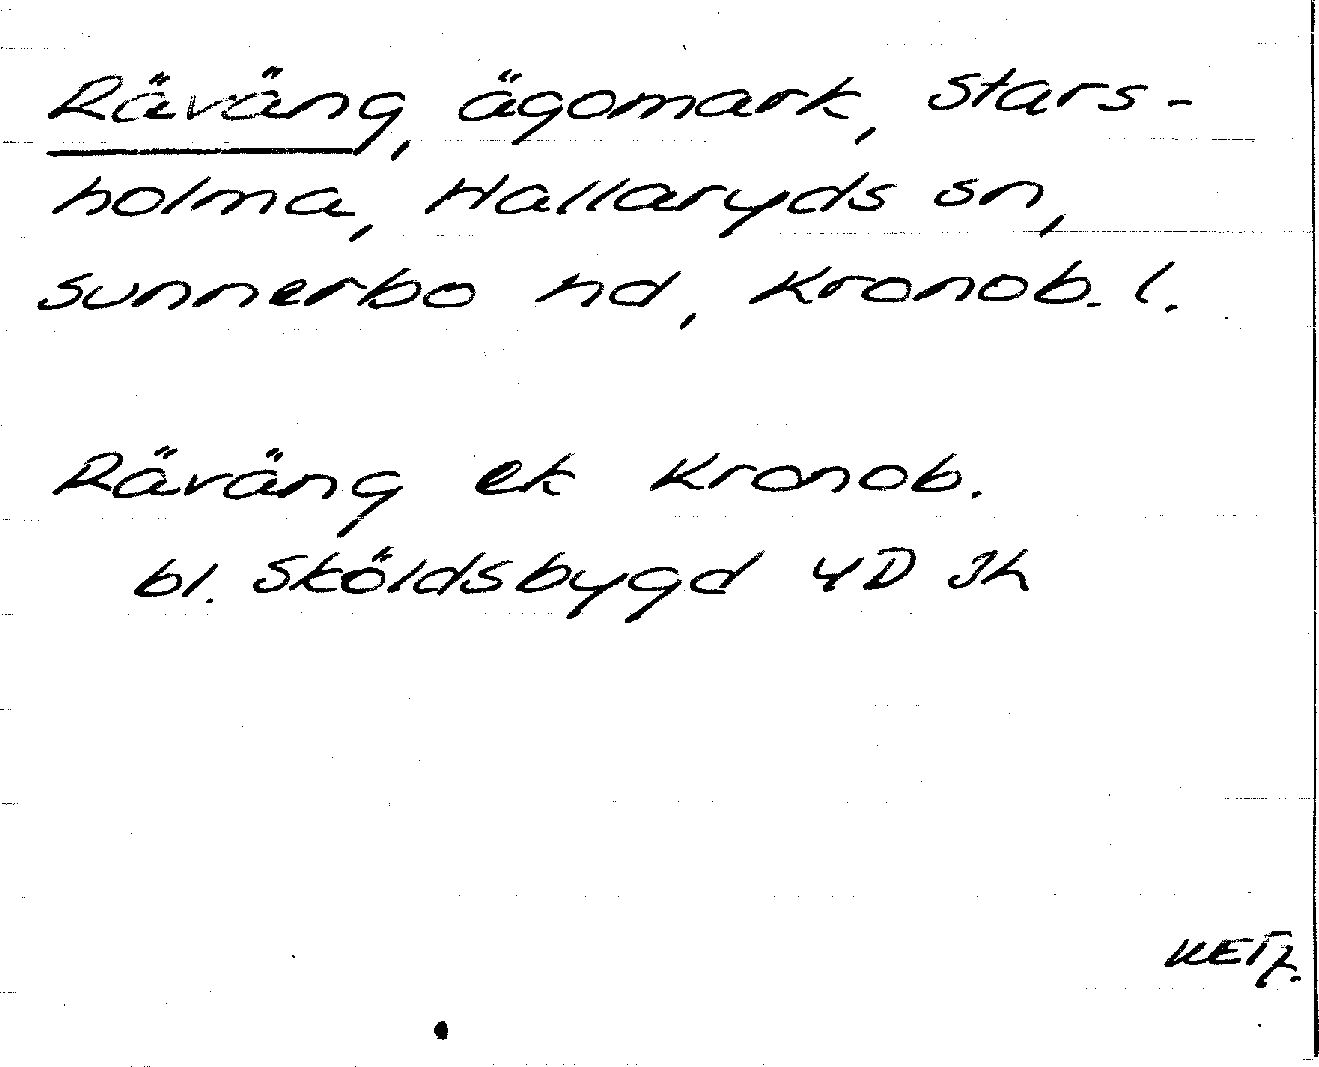 Räväng, ägomark, Stars-
holma, Hallaryds sn,
Sunnerbo hd, Kronob. l.
Räväng ek Kronob.
bl. Sköldsbygd 4D